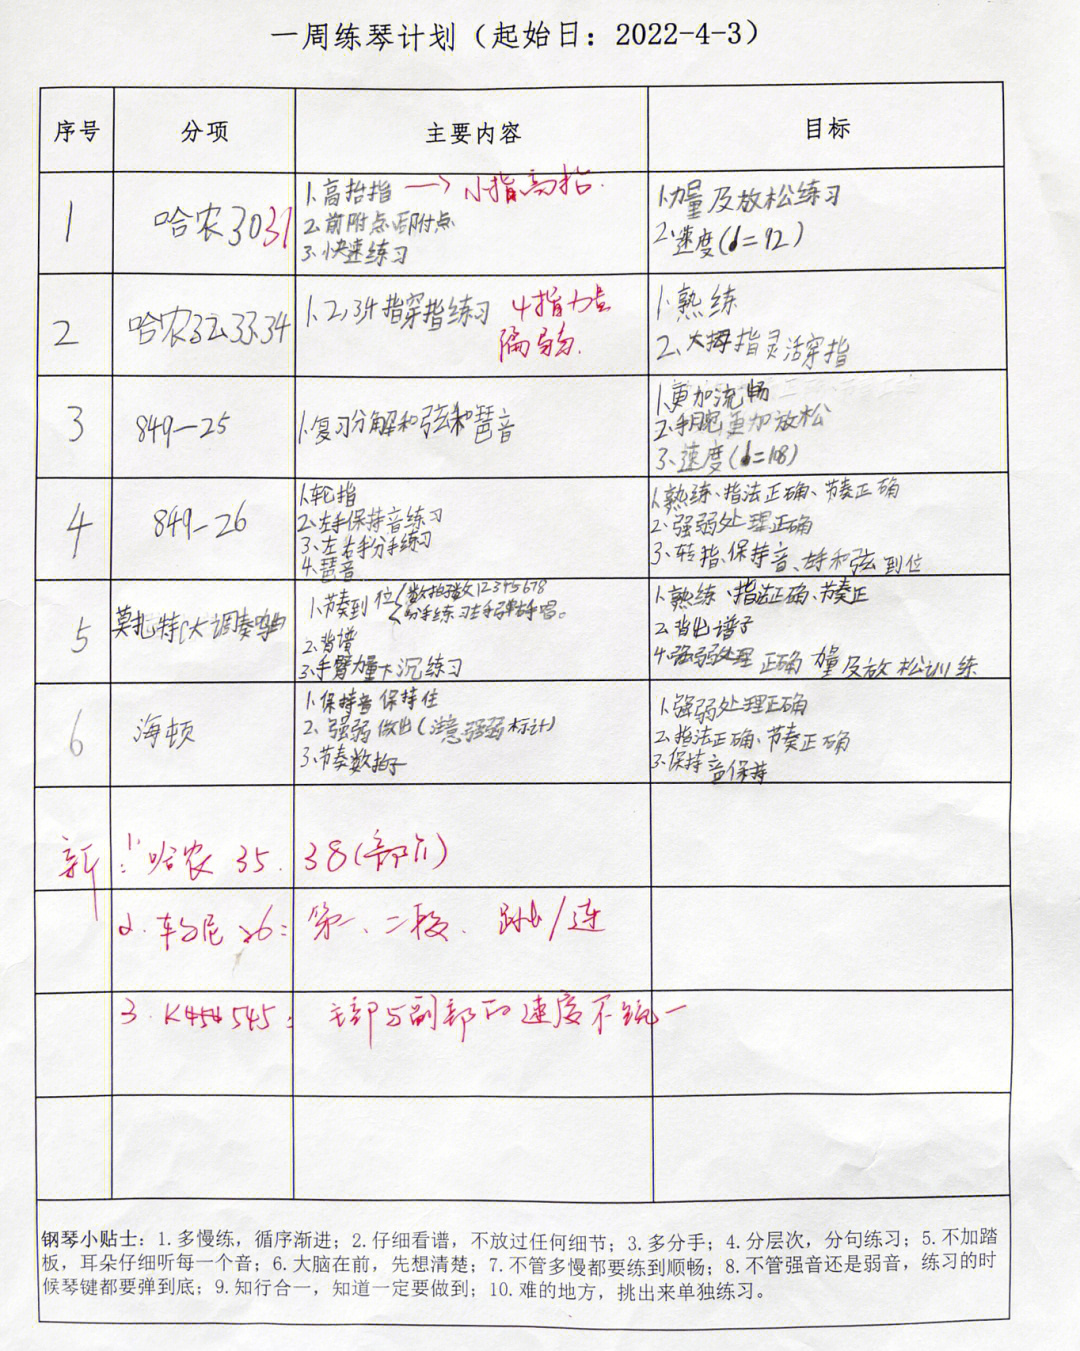 一周练琴计划（起始日：2022-4-3）
序号 分项 主要内容 目标
1 哈农30 31
1.高抬指 → 小指高抬.
2.前附点.后附点
3.快速练习
1.力量及放松练习
2.速度(♩=92)
2 哈农32.33.34
1.2,3,4指穿指练习 4指力点
隔音.
1.熟练
2.大拇指灵活穿指
3 849-25
1.复习分解和弦和琶音
1.更加流畅
2.手腕更加放松
3.速度(♩=108)
4 849-26
1.轮指
2.左手保持音练习
3.左右手分手练习
4.琶音
1.熟练、指法正确、节奏正确
2.强弱处理正确
3.转指、保持音、和弦到位
5 莫扎特C大调奏鸣曲
1.节奏到位 数拍数12345678
分手练习左手弹右手唱。
2.背谱
3.手臂力量下沉练习
1.熟练、指法正确、节奏正
2.背出谱子
4.强弱处理正确 力量及放松训练
6 海顿
1.保持音保持住
2.强弱做出(注意强弱标计)
3.节奏数拍子
1.强弱处理正确
2.指法正确、节奏正确
3.保持音保持
新 1.哈农 35. 38(部分)
2.车尔尼 26: 第一、二段. 跳/连
3.K454 545: 主部与副部的速度不统一
钢琴小贴士：1.多慢练，循序渐进；2.仔细看谱，不放过任何细节；3.多分手；4.分层次，分句练习；5.不加踏
板，耳朵仔细听每一个音；6.大脑在前，先想清楚；7.不管多慢都要练到顺畅；8.不管强音还是弱音，练习的时
候琴键都要弹到底；9.知行合一，知道一定要做到；10.难的地方，挑出来单独练习。